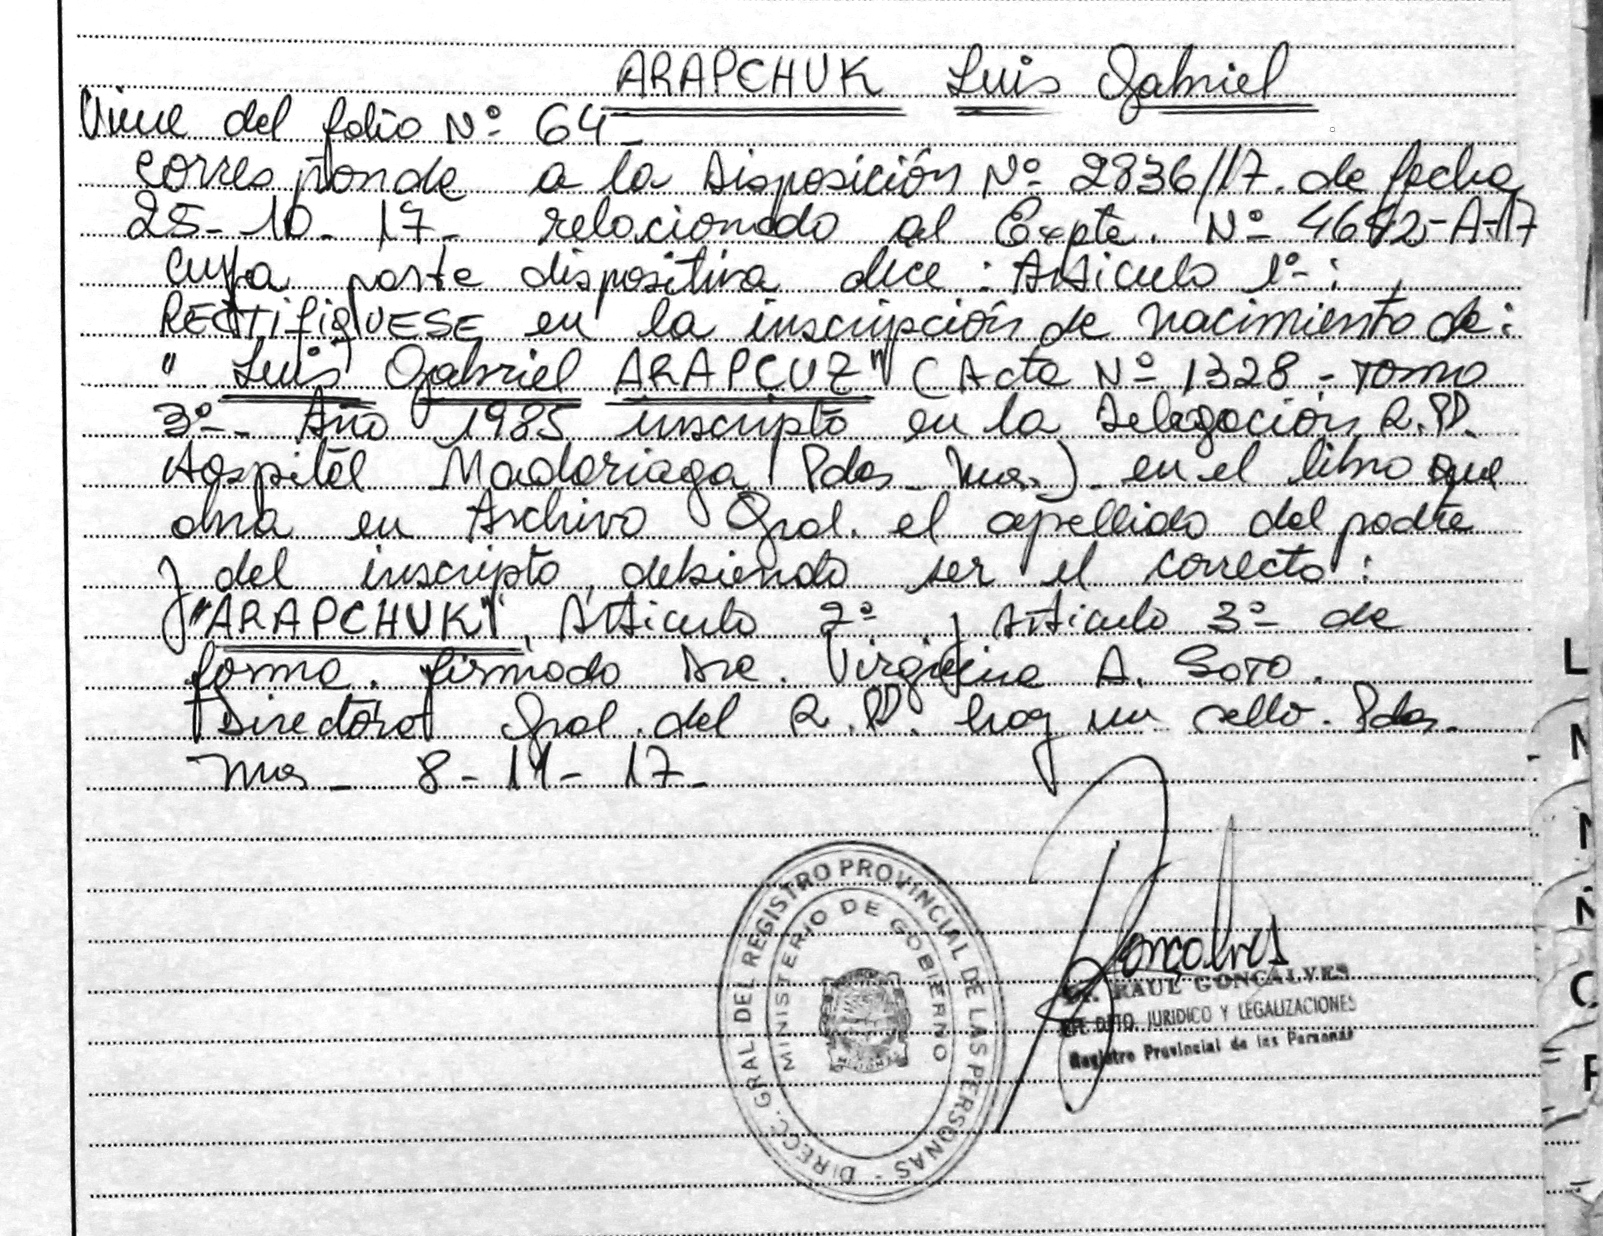 ARAPCHUK Luis Gabriel
Viene del folio Nº 64-
corresponde a la Disposición Nº 2836/17. de fecha
25-10-17- relacionado al Expte. Nº 4642-A-17
cuya parte dispositiva dice: Articulo 1º-:
RECTIFIQUESE en la inscripción de nacimiento de:
"Luis Gabriel ARAPCUZ" (Acta Nº 1328 - Tomo
3º- Año 1985 inscripto en la Delegación R.P.
Hospital Madariaga Pdas. Mnes.) en el libro que
obra en Archivo Gral. el apellido del padre
y del inscripto, debiendo ser el correcto:
"ARAPCHUK". Articulo 2º y Articulo 3º de
forma. firmado Dra. Virginia A. Soto.
Directora Gral. del R.P. hay un sello. Pdas.
Mnes - 8-11-17-
DIRECC. GRAL. DEL REGISTRO PROVINCIAL DE LAS PERSONAS -
MINISTERIO DE GOBIERNO
Gonçalves
RAUL GONCALVES
DPTO. JURIDICO Y LEGALIZACIONES
Registro Provincial de las Personas
L
N
Ñ